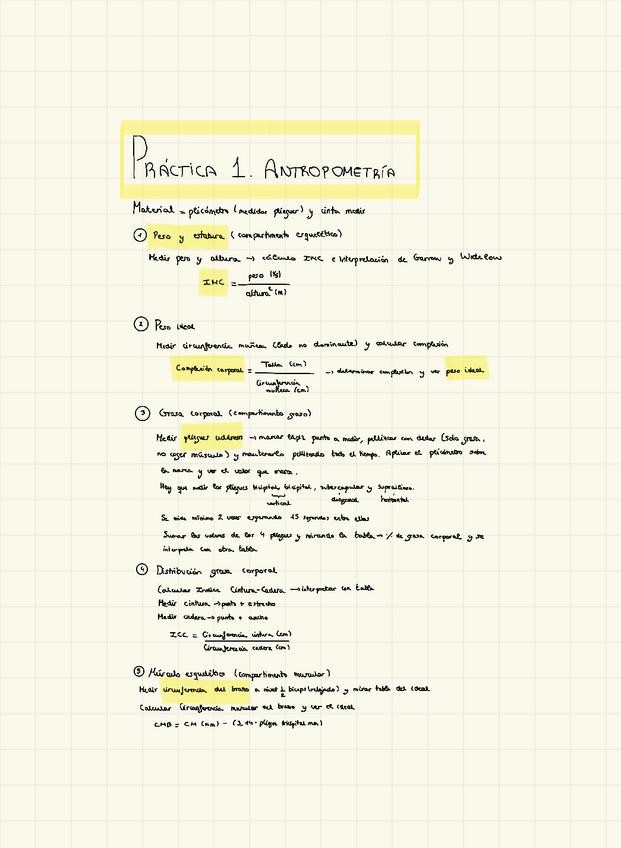 PRÁCTICA 1. ANTROPOMETRÍA
Material = plicómetro (medidor pliegues) y cinta medir
① Peso y estatura (compartimento esquelético)
Medir peso y altura → cálculo IMC e interpretación de Garrow y Webster
IMC = peso (kg)
altura² (m)
② Peso ideal
Medir circunferencia muñeca (lado no dominante) y calcular complexión
Complexión corporal = Talla (cm)
Circunferencia muñeca (cm)
→ determinar complexión y ver peso ideal
③ Grasa corporal (compartimento graso)
Medir pliegues cutáneos → marcar lápiz punto a medir, pellizcar con dedos (solo grasa,
no coger músculo) y mantenerlo pellizcado todo el tiempo. Aplicar el plicómetro sobre
la marca y ver el valor que marca.
Hay que medir los pliegues tricipital, bicipital, subescapular y suprailíaco.
vertical diagonal horizontal
Se mide mínimo 2 veces esperando 15 segundos entre ellas
Sumar los valores de los 4 pliegues y mirando la tabla → % de grasa corporal y se
interpreta con otra tabla
④ Distribución grasa corporal
Calcular Índice Cintura-Cadera → interpretar con tabla
Medir cintura → punto + estrecho
Medir cadera → punto + ancho
ICC = Circunferencia cintura (cm)
Circunferencia cadera (cm)
⑤ Músculo esquelético (compartimento muscular)
Medir circunferencia del brazo a nivel 1/2 biceps (relajado) y mirar tabla del ideal
Calcular Circunferencia muscular del brazo y ver el ideal
CMB = CM (mm) - (3,14 · pliegue tricipital mm)